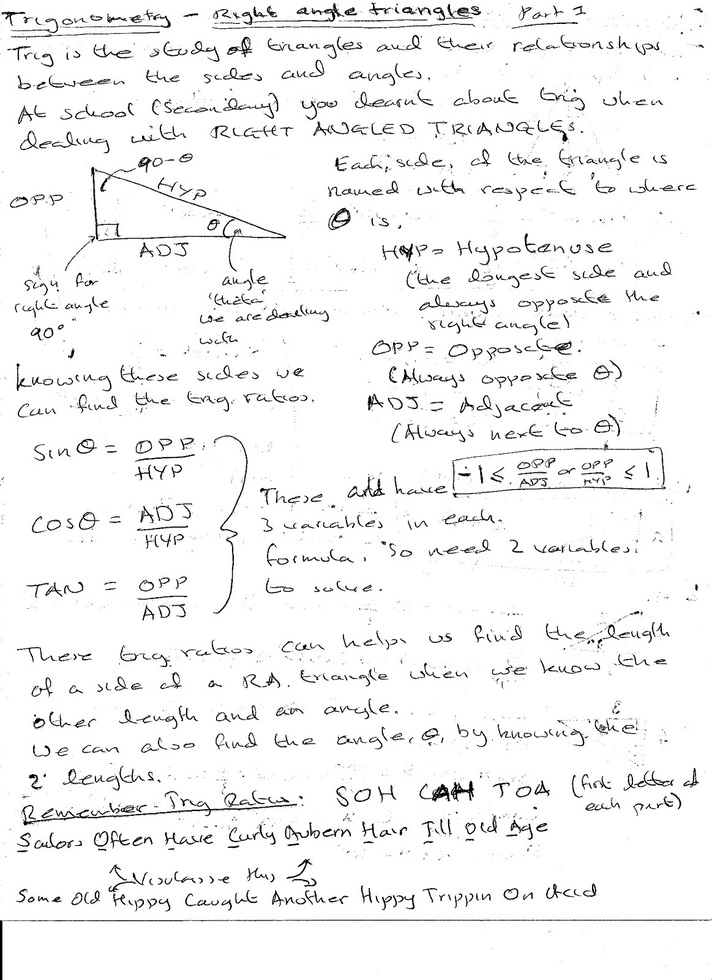 Trigonometry - Right angle triangles Part 1
Trig is the study of triangles and their relationships
between the sides and angles.
At school (Secondary) you learnt about trig when
dealing with RIGHT ANGLED TRIANGLES.
90-θ
HYP
OPP
θ
ADJ
sign for
right angle
90°
angle
'theta'
we are dealing
with
Each side, of the triangle is
named with respect to where
θ is.
HYP = Hypotenuse
(the longest side and
always opposite the
right angle)
OPP = Opposite.
(Always opposite θ)
ADJ = Adjacent
(Always next to θ)
knowing these sides we
can find the trig. ratios.
Sin θ = OPP
HYP
COS θ = ADJ
HYP
TAN = OPP
ADJ
These and have -1 ≤ OPP/ADJ or OPP/HYP ≤ 1
3 variables in each
formula, So need 2 variables
to solve.
These trig ratios can help us find the length
of a side of a R.A. triangle when we know the
other length and an angle.
we can also find the angle, θ, by knowing the
2 lengths.
Remember - Trig Ratios: SOH CAH TOA (first letter of
each part)
Sailors Often Have Curly Aubern Hair Till Old Age
Visulasse this
Some Old Hippy Caught Another Hippy Trippin On Acid